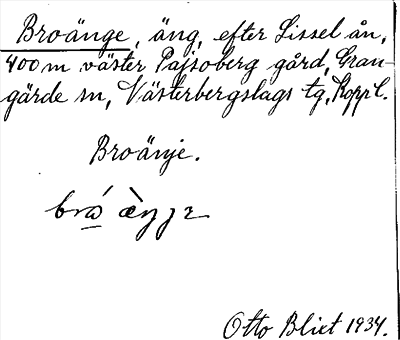 Broänge, äng, efter Lissel ån,
400 m väster Pajsoberg gård, Gran-
gärde sn, Västerbergslags tg, Kopp l.
Broänje.
Otto Blixt 1934.